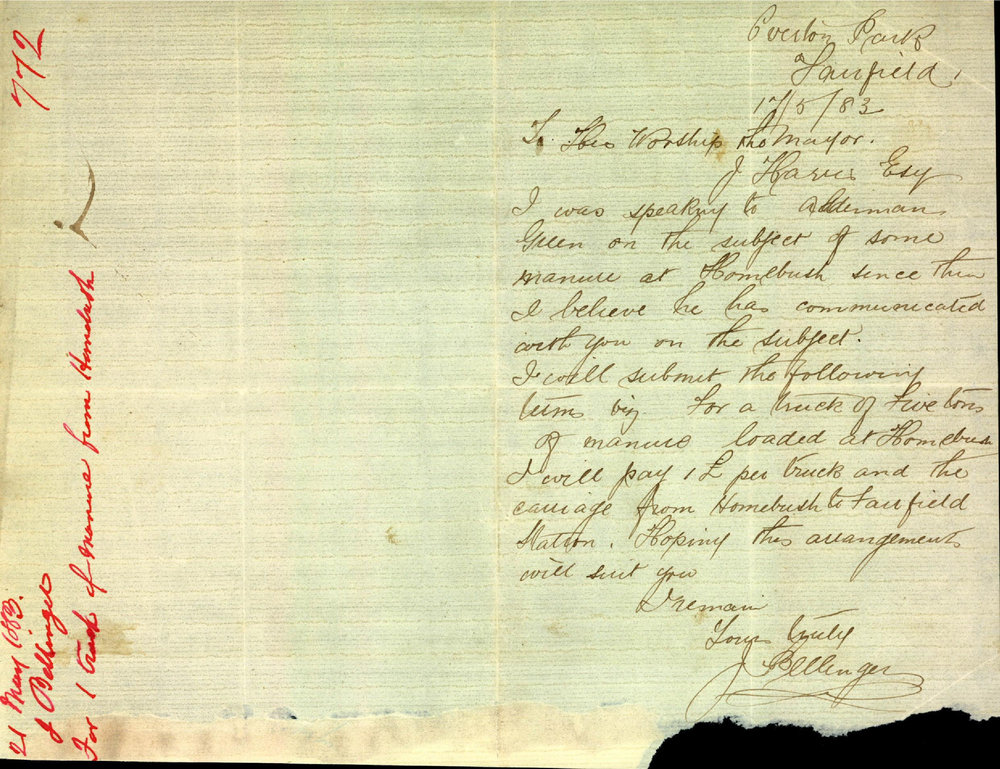 Overton Park
Fairfield,
17/5/83
To His Worship the Mayor.
J Harris Esq
I was speaking to Alderman
Green on the subject of some
manure at Homebush since then
I believe he has communicated
with you on the subject.
I will submit the following
terms viz. For a truck of Five tons
of manure loaded at Homebush
I will pay 1£ per truck and the
carriage from Homebush to Fairfield
Station. Hoping this arrangements
will suit you
I remain
Yours truly
J Bellinger
772
21 May 1883.
J Bellinger
For 1 truck of manure from Homebush